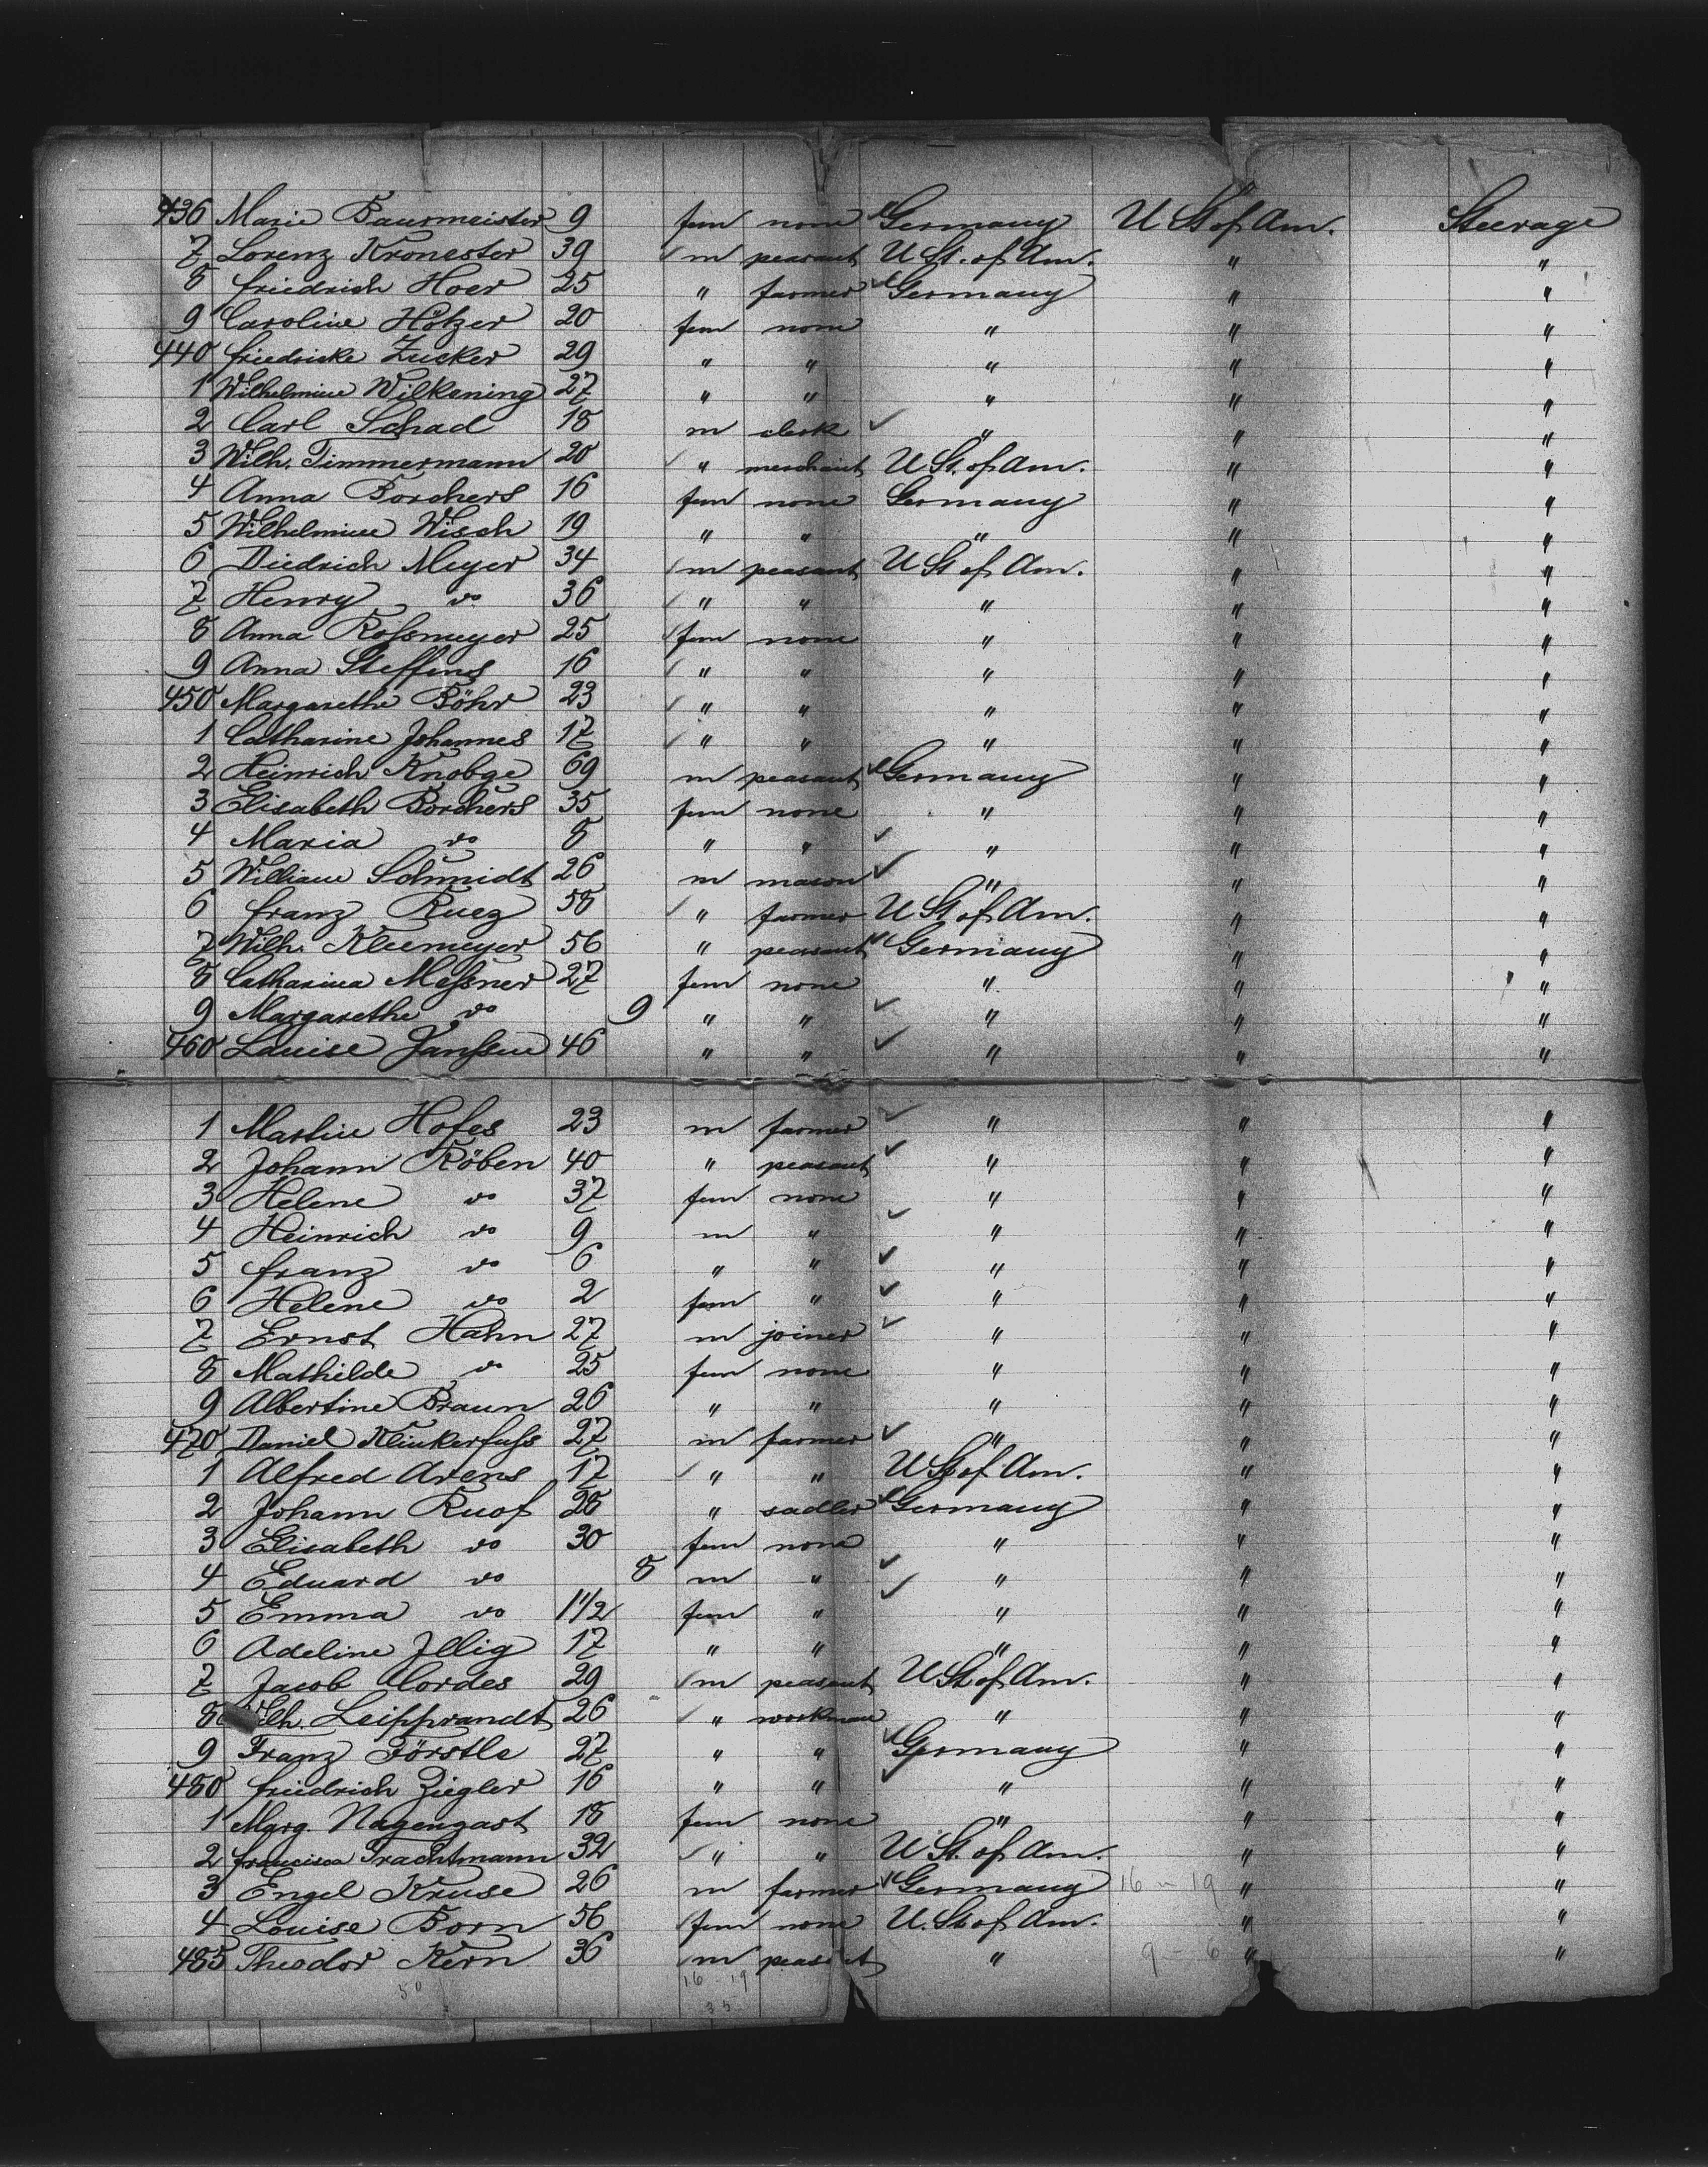 436 Marie Bausmeister 9 fem none Germany U St of Am. Steerage
7 Lorenz Kronester 39 m peasant U St. of Am. " "
8 Friedrich Hoer 25 " farmer Germany " "
9 Caroline Hötzer 20 fem none " " "
440 Friedricke Zucker 29 " " " " "
1 Wilhelmine Wilkening 27 " " " " "
2 Carl Schad 18 m clerk " " "
3 Wilh. Timmermann 20 " merchant U St. of Am. " "
4 Anna Borchers 16 fem none Germany " "
5 Wilhelmine Wisch 19 " " " " "
6 Diedrich Meyer 34 m peasant U St of Am. " "
7 Henry do 36 " " " " "
8 Anna Roßmeyer 25 fem none " " "
9 Anna Steffens 16 " " " " "
450 Margarethe Böhr 23 " " " " "
1 Catharine Johannes 17 " " " " "
2 Heinrich Knobge 69 m peasant Germany " "
3 Elisabeth Borchers 35 fem none " " "
4 Maria do 8 " " " " "
5 William Schmidt 26 m mason " " "
6 Franz Ruez 58 " farmer U St of Am. " "
7 Wilh. Kleemeyer 56 " peasant Germany " "
8 Catharina Meßner 27 fem none " " "
9 Margarethe do 9 " " " " "
460 Louise Janßen 46 " " " " "
1 Martin Hofes 23 m farmer " " "
2 Johann Röben 40 " peasant " " "
3 Helene do 37 fem none " " "
4 Heinrich do 9 m " " " "
5 Franz do 6 " " " " "
6 Helene do 2 fem " " " "
7 Ernst Hahn 27 m joiner " " "
8 Mathilde do 25 fem none " " "
9 Albertine Braun 26 " " " " "
470 Daniel Klinkerfuß 27 m farmer " " "
1 Alfred Arens 17 " " U St of Am. " "
2 Johann Ruof 28 " sadler Germany " "
3 Elisabeth do 30 fem none " " "
4 Eduard do 8 m " " " "
5 Emma do 1 1/2 fem " " " "
6 Adeline Illig 17 " " " " "
7 Jacob Cordes 29 m peasant U St of Am. " "
8 Wilh. Leipprandt 26 " workman " " "
9 Franz Förstle 27 " " Germany " "
480 Friedrich Ziegler 16 " " " " "
1 Marg. Nagengast 18 fem none " " "
2 Francisca Trachtmann 32 " " U St. of Am. " "
3 Engel Kruse 26 m farmer Germany 16 - 19 " "
4 Louise Born 56 fem none U. St of Am. " "
485 Theodor Kern 36 m peasant " 9 - 6 " "
50 16 - 19
35